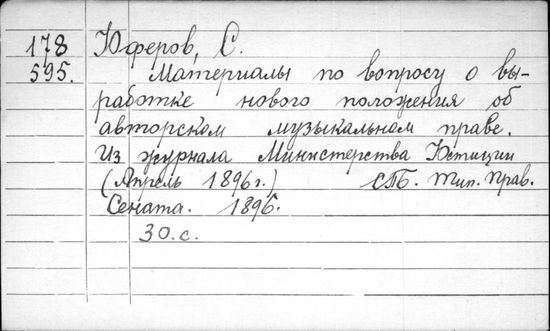 178 Юферов, С.
595. Материалы по вопросу о вы-
работке нового положения об
авторском музыкальном праве.
Из журнала Министерства Юстиции
(Апрель 1896 г.) СПб. Тип. Прав.
Сената. 1896.
30. с.